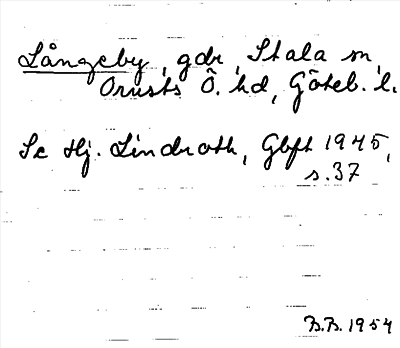 Långeby, gdr, Stala sn,
Orusts Ö. hd, Göteb. l.
Se Hj. Lindroth, Gbfh 1945,
s. 37
B.B. 1954